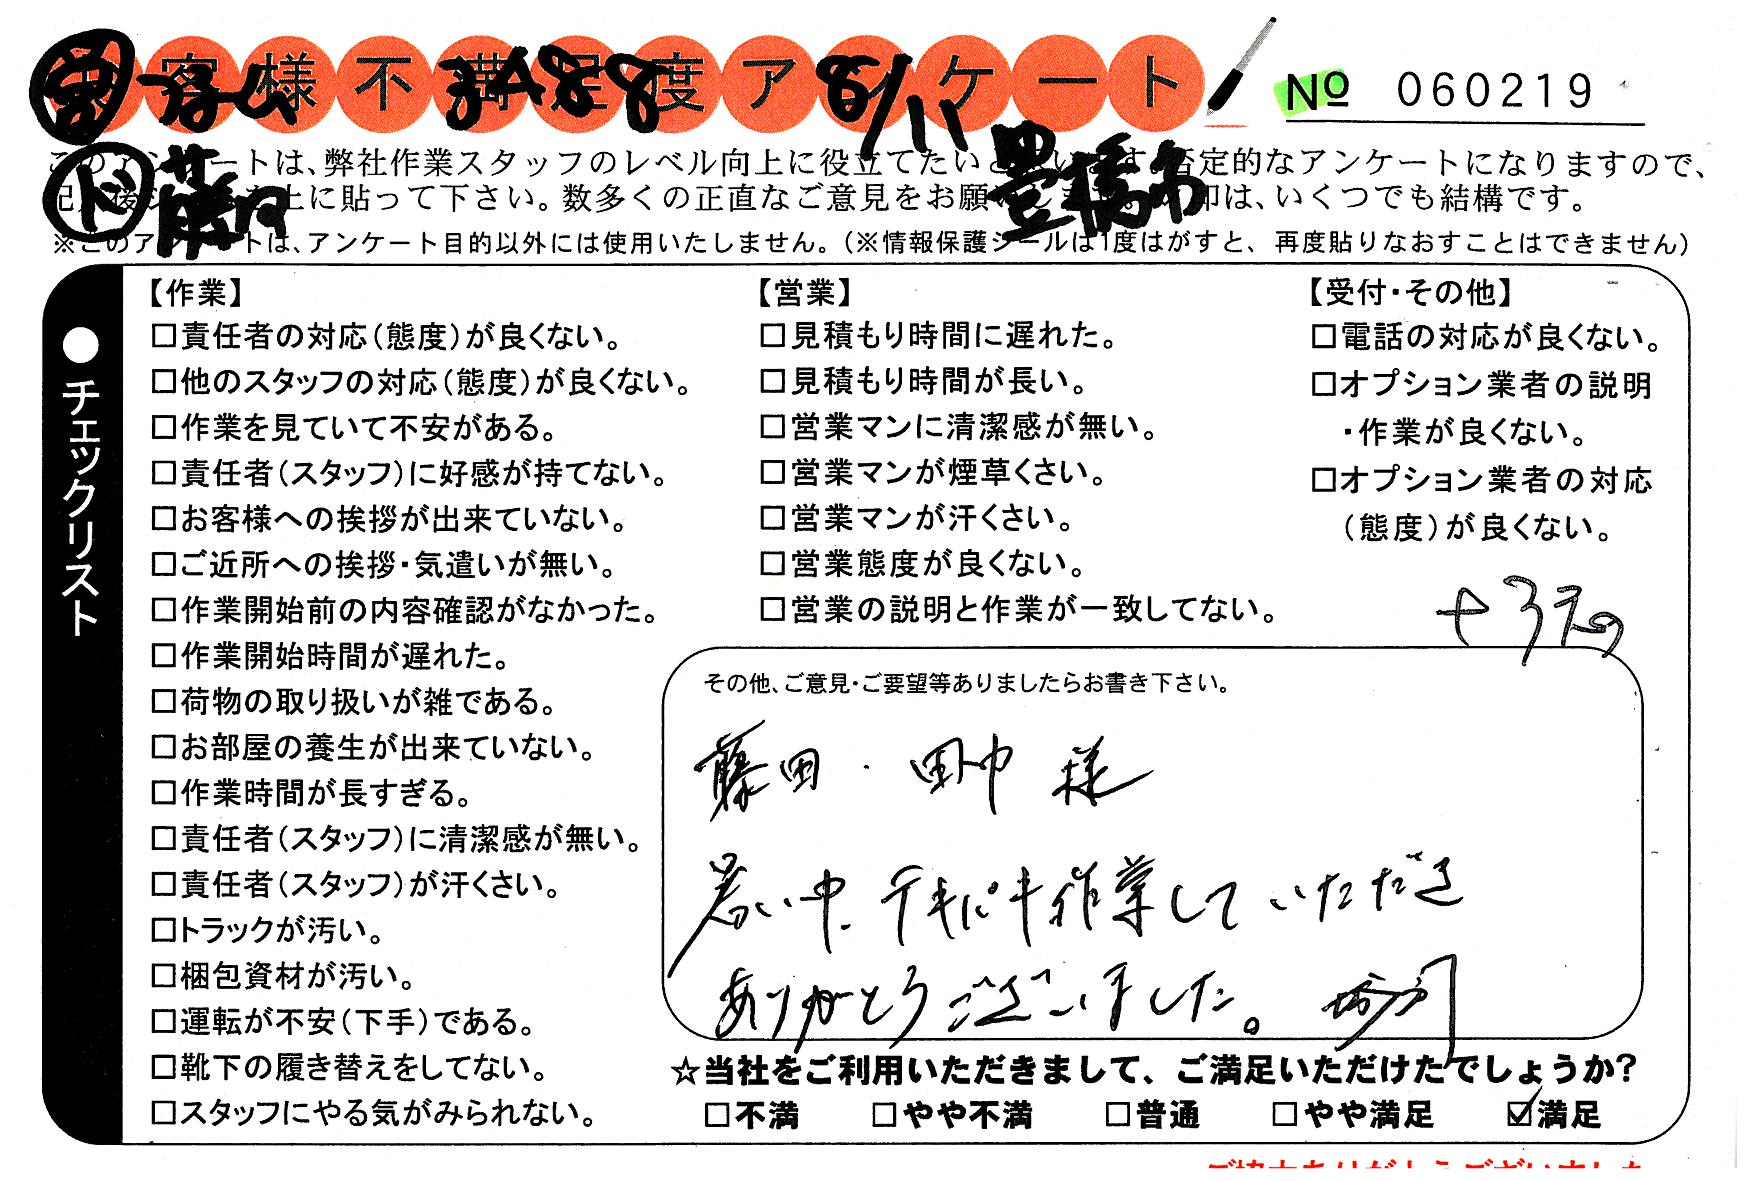 お客様不満足度アンケート
3488
8/11
№ 060219
豊橋市
ド 藤田
このアンケートは、弊社作業スタッフのレベル向上に役立てたいと思います。否定的なアンケートになりますので、
記入後シールを上に貼って下さい。数多くの正直なご意見をお願いします。✓印は、いくつでも結構です。
※このアンケートは、アンケート目的以外には使用いたしません。（※情報保護シールは1度はがすと、再度貼りなおすことはできません）
●チェックリスト
【作業】
□責任者の対応（態度）が良くない。
□他のスタッフの対応（態度）が良くない。
□作業を見ていて不安がある。
□責任者（スタッフ）に好感が持てない。
□お客様への挨拶が出来ていない。
□ご近所への挨拶・気遣いが無い。
□作業開始前の内容確認がなかった。
□作業開始時間が遅れた。
□荷物の取り扱いが雑である。
□お部屋の養生が出来ていない。
□作業時間が長すぎる。
□責任者（スタッフ）に清潔感が無い。
□責任者（スタッフ）が汗くさい。
□トラックが汚い。
□梱包資材が汚い。
□運転が不安（下手）である。
□靴下の履き替えをしてない。
□スタッフにやる気がみられない。
【営業】
□見積もり時間に遅れた。
□見積もり時間が長い。
□営業マンに清潔感が無い。
□営業マンが煙草くさい。
□営業マンが汗くさい。
□営業態度が良くない。
□営業の説明と作業が一致してない。
【受付・その他】
□電話の対応が良くない。
□オプション業者の説明
・作業が良くない。
□オプション業者の対応
（態度）が良くない。
その他、ご意見・ご要望等ありましたらお書き下さい。
藤田・田中 様
暑い中、テキパキ作業していただき
ありがとうございました。
☆当社をご利用いただきまして、ご満足いただけたでしょうか？
□不満 □やや不満 □普通 □やや満足 ☑満足
ご協力ありがとうございました